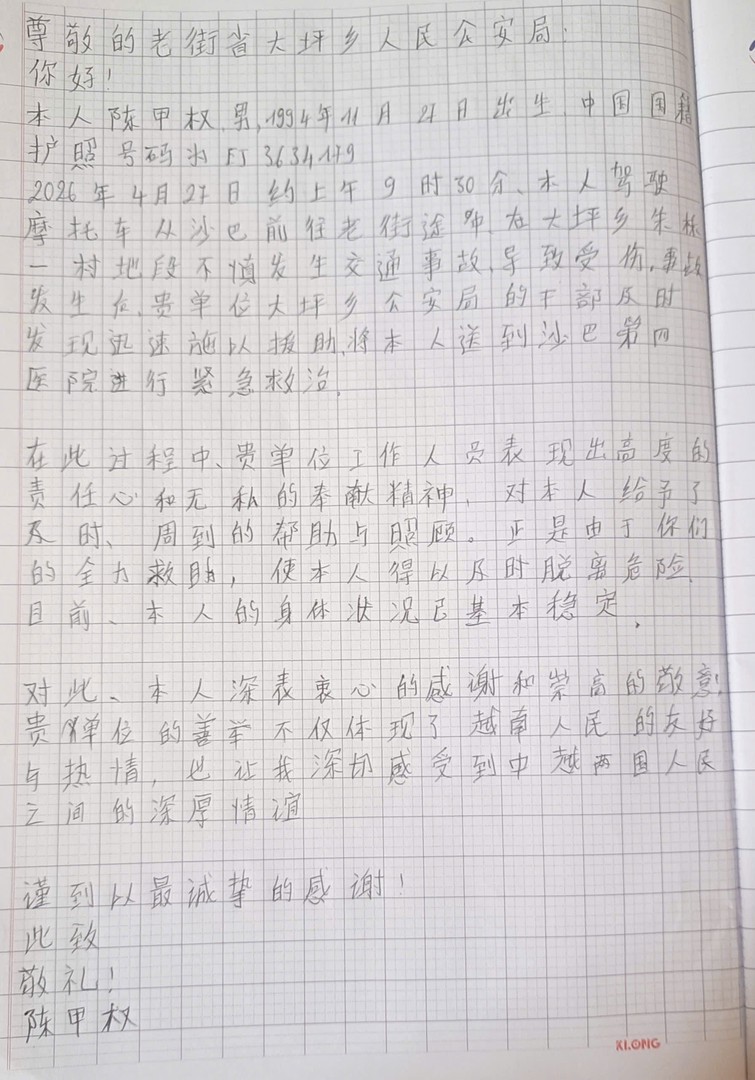 尊敬的老街省大坪乡人民公安局:
你好!
本人陈甲权,男,1994年11月21日出生,中国国籍
护照号码为EJ3634179
2026年4月27日约上午9时30分、本人驾驶
摩托车从沙巴前往老街途中,在大坪乡朱林
一村地段不慎发生交通事故,导致受伤,事故
发生后,贵单位大坪乡公安局的干部及时
发现迅速施以援助,将本人送到沙巴第四
医院进行紧急救治.
在此过程中、贵单位工作人员表现出高度的
责任心和无私的奉献精神,对本人给予了
及时、周到的帮助与照顾。正是由于你们
的全力救助,使本人得以及时脱离危险.
目前、本人的身体状况已基本稳定,
对此、本人深表衷心的感谢和崇高的敬意!
贵单位的善举不仅体现了越南人民的友好
与热情,也让我深却感受到中越两国人民
之间的深厚情谊
谨到以最诚挚的感谢!
此致
敬礼!
陈甲权
KLONG